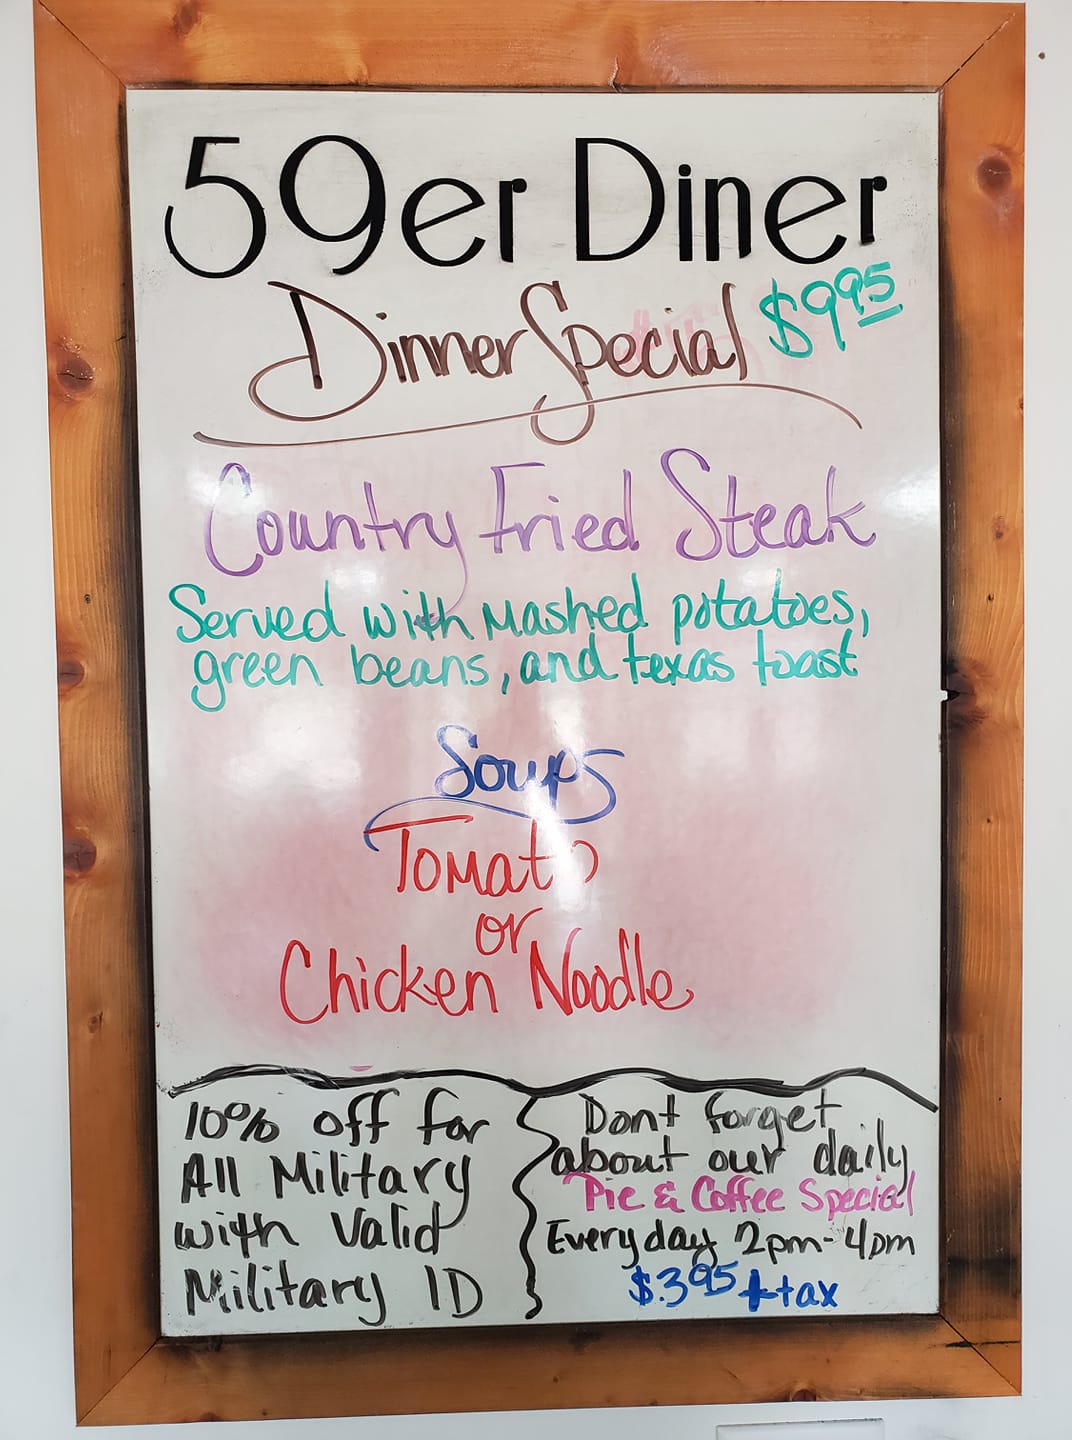 59er Diner
Dinner Special $9.95
Country Fried Steak
Served with Mashed potatoes,
green beans, and texas toast
Soups
Tomato
or
Chicken Noodle
10% off for
All Military
with Valid
Military ID
Dont forget
about our daily
Pie & Coffee Special
Everyday 2pm-4pm
$3.95 + tax